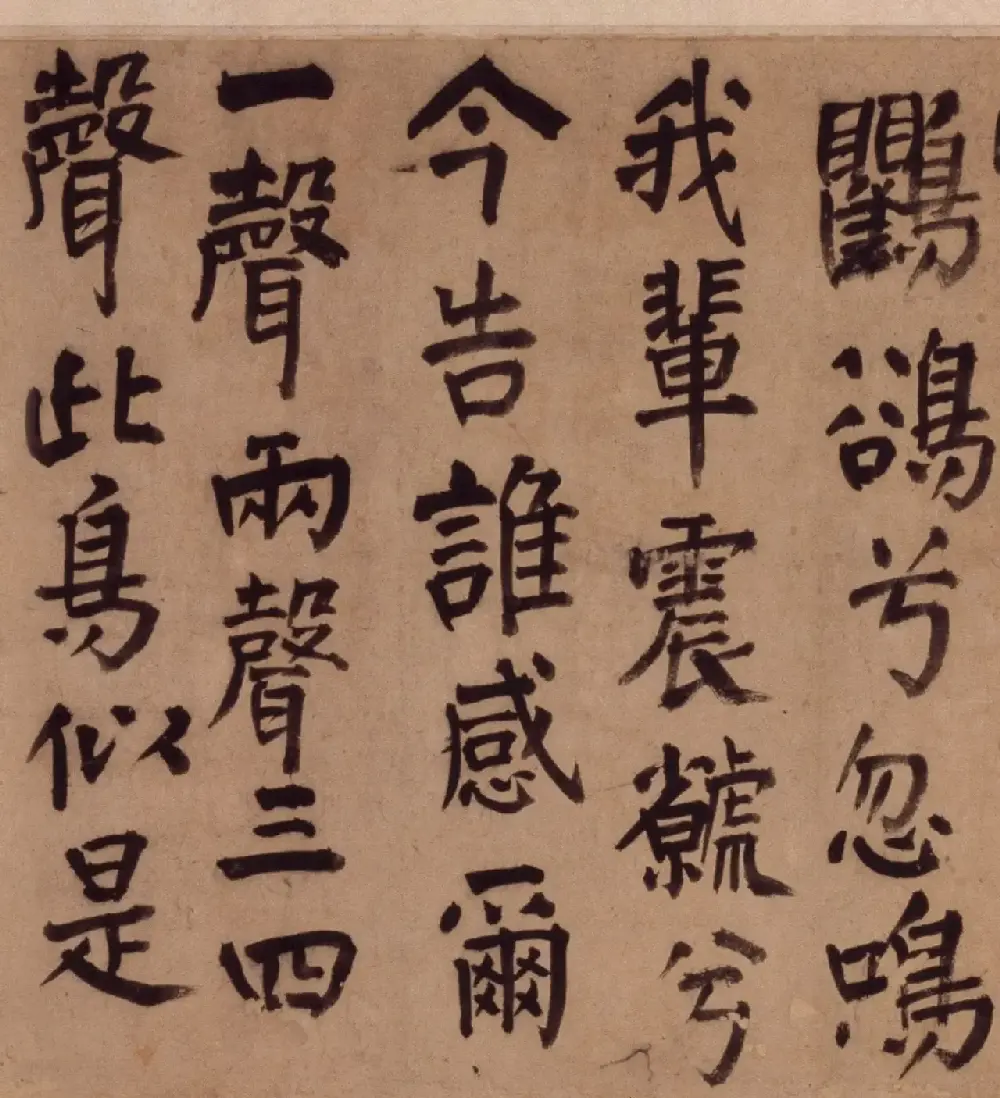 鸜鵒兮忽鳴
我輩震虩兮
今告誰感爾
一聲兩聲三四
聲此鳥似是